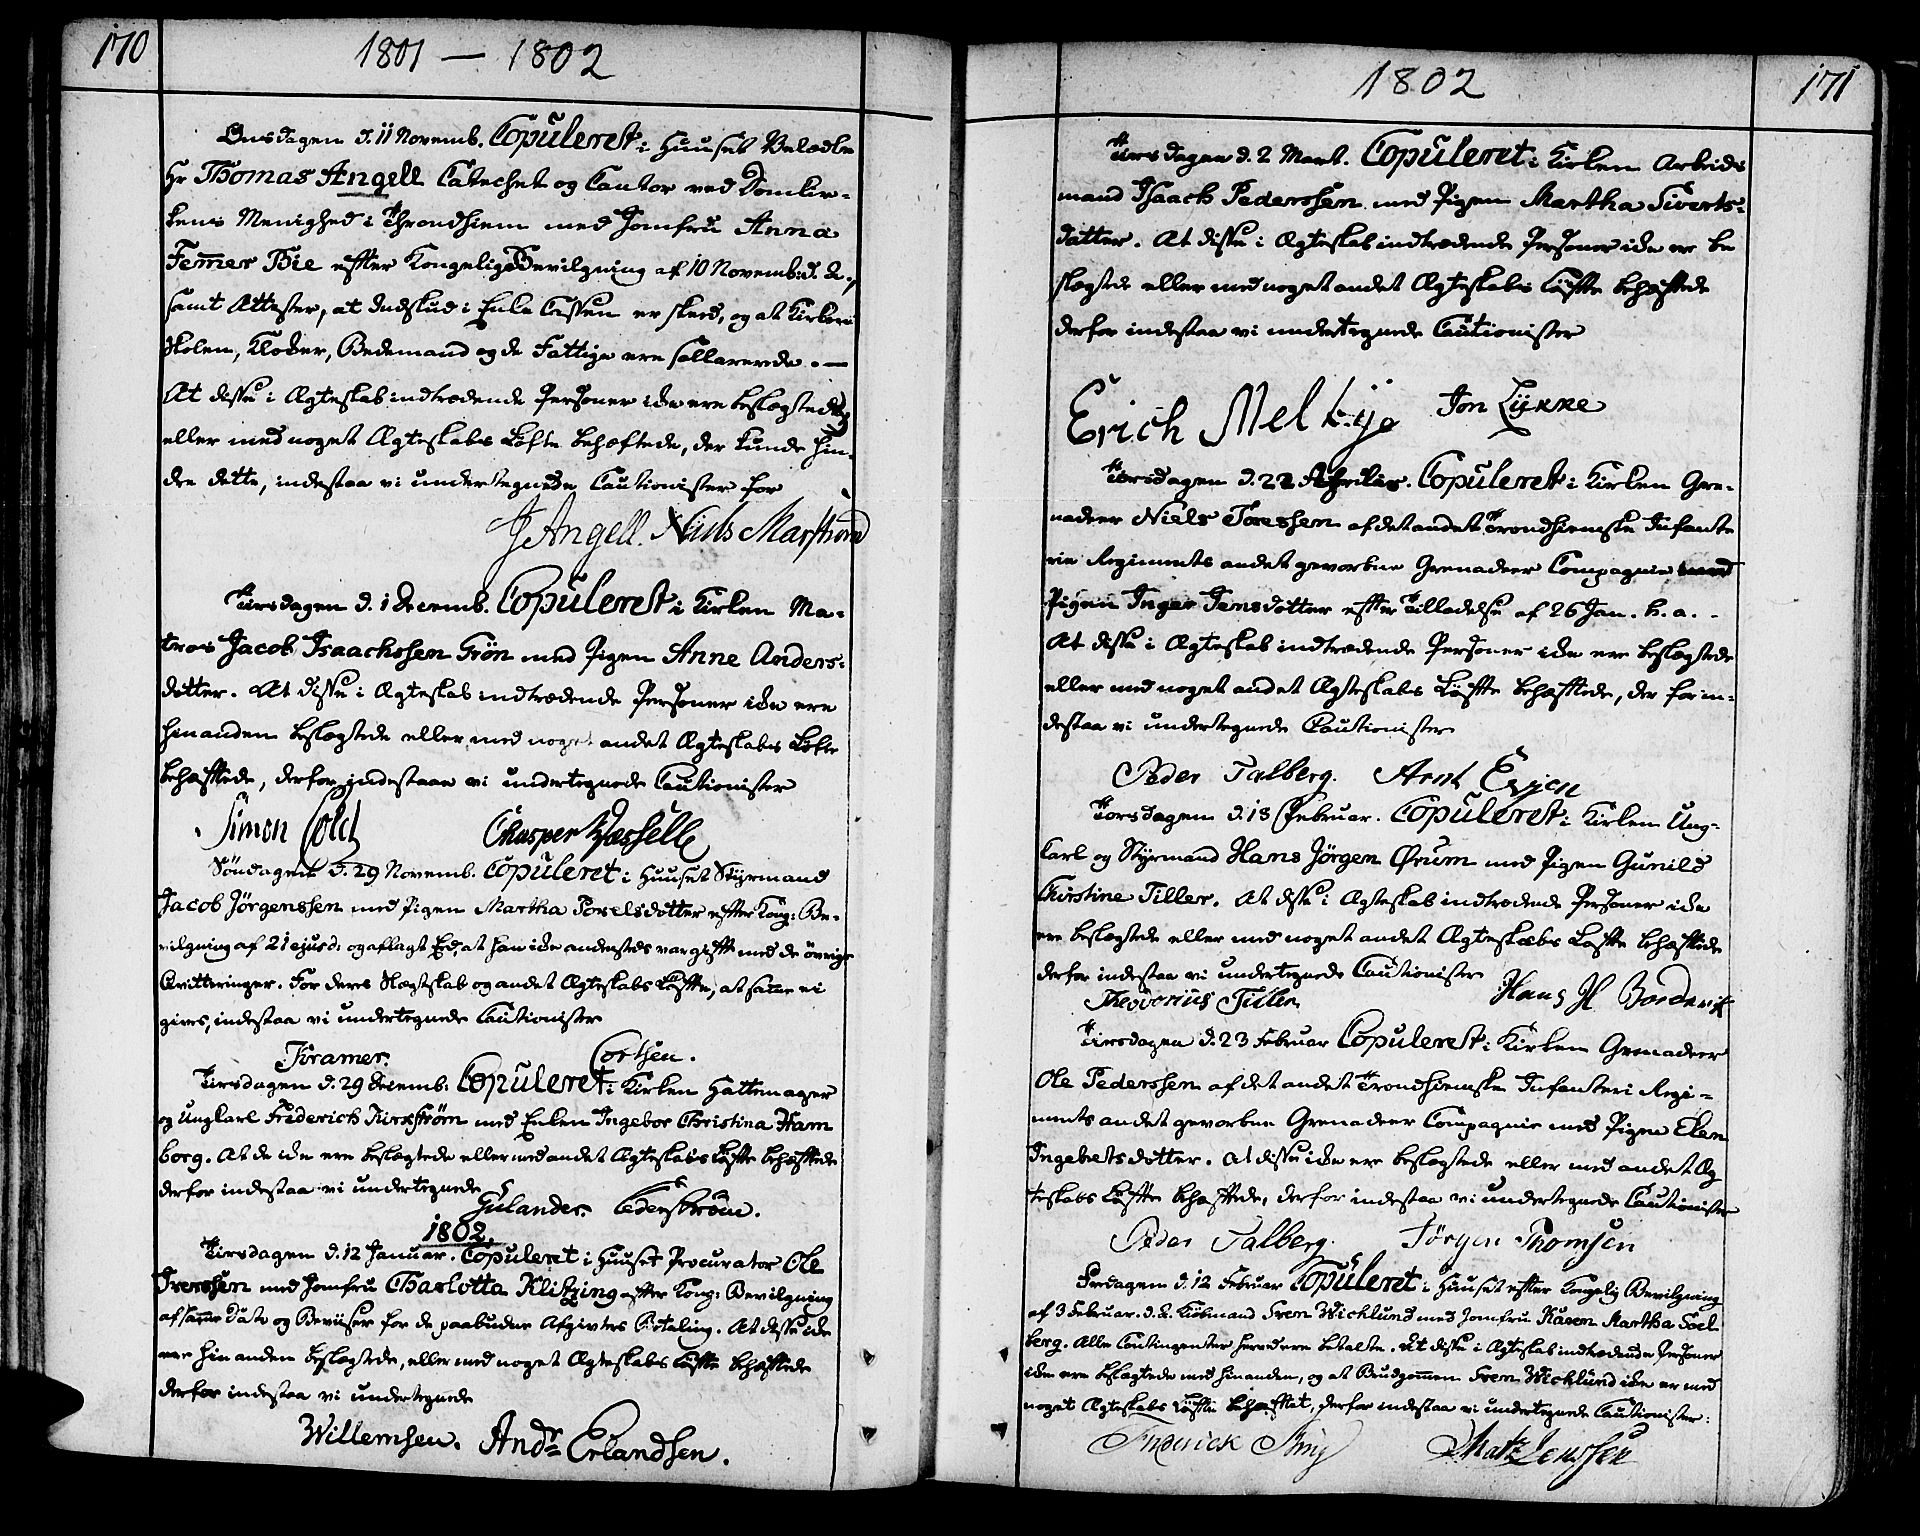 170
1801 — 1802
Onsdagen d. 11 Novemb. Copuleret i Huuset Velædle
Hr Thomas Angell Catechet og Cantor ved Domkir-
kens Menighed i Throndhiem med Jomfru Anna
Femer Bie effter Kongelige Bevilgning af 10 Novemb: d. A.,
samt Attester, at Indskud i Enke Cassen er skeed, og at Kirken
Skolen, Klokker, Bedemand og de Fattige ere sallarerede. —
At disse i Ægteskab indtrædende Personer ikke ere beslægtede
eller med noget Ægteskabs Løfte behæftede, der kunde hin-
dre dette, indestaa vi undertegnede Cautionister for
J Angell. Niels Marstrand
Tirsdagen d. 1 Decemb. Copuleret i Kirken Ma-
tros Jacob Isaachssen Grön med Pigen Anne Anders-
dotter. At disse i Ægteskab indtrædende Personer ikke ere
hinanden beslægtede eller med noget andet Ægteskabs Løfte
behæfftede, derfor indestaae vi undertegnede Cautionister
Simon Colct Chasper Hasselle
Söndagen d. 29 Novemb. Copuleret i Huuset Styrmand
Jacob Jörgenssen med Pigen Martha Povelsdotter effter Kong: Be-
vilgning af 21 ejusd: og aflagt Eed, at han ikke andersteds var gifft med de övrige
Qvitteringer. For deres Slægtskab og andet Ægteskabs Løffte, at samme ei
gives, indestaa vi undertegnede Cautionister
Kramer. Corthsen.
Tirsdagen d. 29 Decemb: Copuleret i Kirken Hattemager
og Ungkarl Friderich Kirstrøm med Enken Ingebor Christina Ham
borg. At de ikke ere beslægtede eller med andet Ægteskabs Løffte behæfftede
derfor indestaa vi undertegnede
Gulander. Cederström.
1802.
Tirsdagen d. 12 Januar. Copuleret i Huuset Procurator Ole
Iverssen med Jomfru Charlotta Klitzing effter Kong: Bevilgning
af samme Dato og Beviiser for de paabudne Afgivters Betaling. At disse ikke
ere hinanden beslægtede, eller med noget Ægteskabs Løffte behæfftede
derfor indestaa vi undertegnede
Willemsen. Andr Erlandsen.
1802
171
Tirsdagen d. 2 Mart. Copuleret i Kirken Arbeids
mand Isaach Pederssen med Pigen Martha Siverts-
dotter. At disse i Ægteskab indtrædende Personer ikke er be
slægtede eller med noget andet Ægteskabs Løffte behæfftede
derfor indestaa vi undertegnede Cautionister
Erich Melkije Jon Lykke
Torsdagen d. 22 Aprilis. Copuleret i Kirken Gre-
nadeer Niels Toressen af det andet Trondhiemske Infante
rie Regiments andet gevorbne Grenadeer Compagnie med
Pigen Inger Jensdotter effter Tilladelse af 26 Jan. h. a. -
At disse i Ægteskab indtrædende Personer ikke ere beslægtede
eller med noget andet Ægteskabs Løffte behæfftede, der for in-
destaa vi undertegnede Cautionister
Peder Talberg. Arnt Evjen
Torsdagen d. 18 Februar. Copuleret i Kirken Ung-
karl og Styrmand Hans Jörgen Ørum med Pigen Gunild
Christine Tiller. At disse i Ægteskab indtrædende Personer ikke
ere beslægtede eller med noget andet Ægteskabs Løffte behæfftede
derfor indestaa vi undertegnede Cautionister
Theodorius Tiller Hans H Bordevik
Tirsdagen d. 23 Februar Copuleret i Kirken Grenadeer
Ole Pederssen af det andet Trondhiemske Infanteri Regi-
ments andet gevorbne Grenadeer Compagnie med Pigen Elen
Ingebretsdotter. At disse ikke ere beslægtede eller med andet Æg
teskabs Løffte behæfftede, derfor indestaa vi undertegnede Cautionister
Peder Talberg. Jörgen Thomsen
Fredagen d. 12 Februar Copuleret i Huuset effter Kongelig Bevilgning
af 3 Februar. d. A. Kiöbmand Sven Wicklund med Jomfru Karen Martha Soel
berg. Alle Contingenter herved ere betalte. At disse i Ægteskab indtrædende Personer
ikke ere beslægtede med hinanden, og at Brudgommen Sven Wicklund ikke er med
noget Ægteskabs Løffte behæfftet, derfor indestaa vi undertegnede Cautionister:
Friderick Matz Jenssen